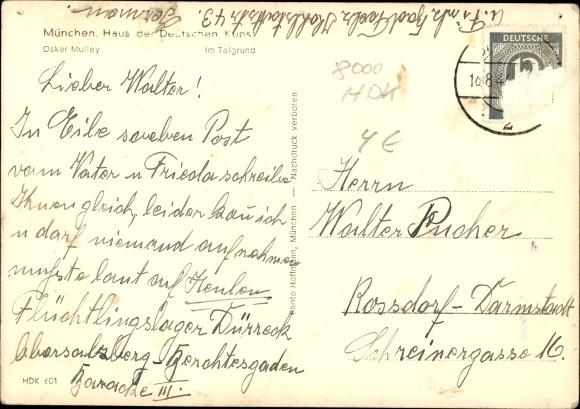 München, Haus der Deutschen Kunst
Oskar Mulley Im Talgrund
Lieber Walter!
In Eile soeben Post
vom Vater u Frieda schreibe
Ihnen gleich, leider kan ich
u darf niemand aufnehmen
musste laut auf Heulen
Flüchtlingslager Dürreck
Obersalzberg-Berchtesgaden
Baracke III.
HDK 601
Photo Hoffmann, München — Nachdruck verboten
8000
HDK
4 €
DEUTSCHE
16.8.4
Herrn
Walter Pucher
Rossdorf-Darmstadt
Schreinergasse 16.